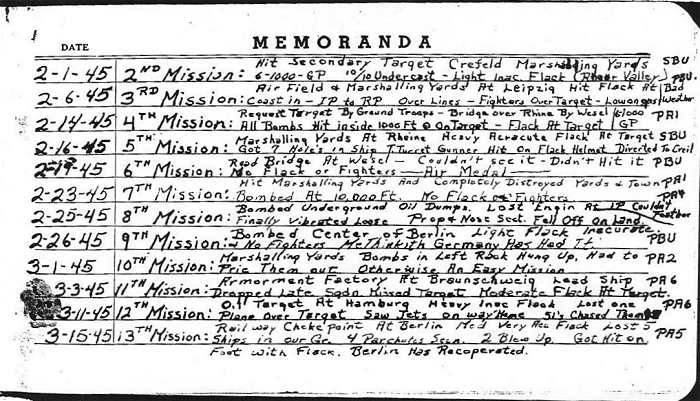 MEMORANDA
DATE
Hit Secondary Target Crefeld Marshalling Yards SBU
2-1-45 2ND Mission: 6-1000-GP 10/10 Undercast - Light Inac. Flack (Rheur Valley) PBU
Air Field & Marshalling Yards At Leipzig Hit Flack At Bad
2-6-45 3RD Mission: Coast in - IP to RP Over Lines - Fighters Over Target - Low on gas Weather
Request Target By Ground Troops - Bridge over Rhine By Wesel 6/1000 PA1
2-14-45 4TH Mission: All Bombs Hit inside 1000 Ft @ On Target - Flack At Target GP
Marshalling Yards At Rheine Heavy Acracute Flack At Target SBU
2-16-45 5TH Mission: Got 7 Hole's in Ship T.Turret Gunner Hit On Flack Helmet Diverted To Creil
Road Bridge At Wesel - Couldn't see it - Didn't Hit it PBU
2-19-45 6TH Mission: No Flack or Fighters - Air Medal
Hit Marshalling Yards And Completely Distroyed Yards & Town PA1
2-23-45 7TH Mission: Bombed At 10,000 Ft. No Flack or Fighters
Bombed Underground Oil Dumps. Lost Engin At IP Couldn't PA4
2-25-45 8TH Mission: Finally Vibrated Loose Prop & Nose Sect. Fell Off On Land. Feather
Bombed Center of Berlin Light Flack Inacurate
2-26-45 9TH Mission: & No Fighters MeThinkith Germany Has Had It. PBU
Marshalling Yards Bombs in Left Rack Hung Up, Had to
3-1-45 10TH Mission: Prie Them out Otherwise An Easy Mission PA2
Armorment Factory At Braunschweig Lead Ship PA6
3-3-45 11TH Mission: Dropped Late Sqdn Missed Target Moderate Flack At Target.
Oil Target At Hamburg Heavy Inac Flack Lost one PA6
3-11-45 12TH Mission: Plane Over Target Saw Jets on way Home 51's Chased Them
Railway Cheke point At Berlin Med Very Acc Flack Lost 5
3-15-45 13TH Mission: Ships in our Gr. 4 Parchutes Seen. 2 Blew Up. Got Hit on PA5
Foot with Flack. Berlin Has Recoperated.